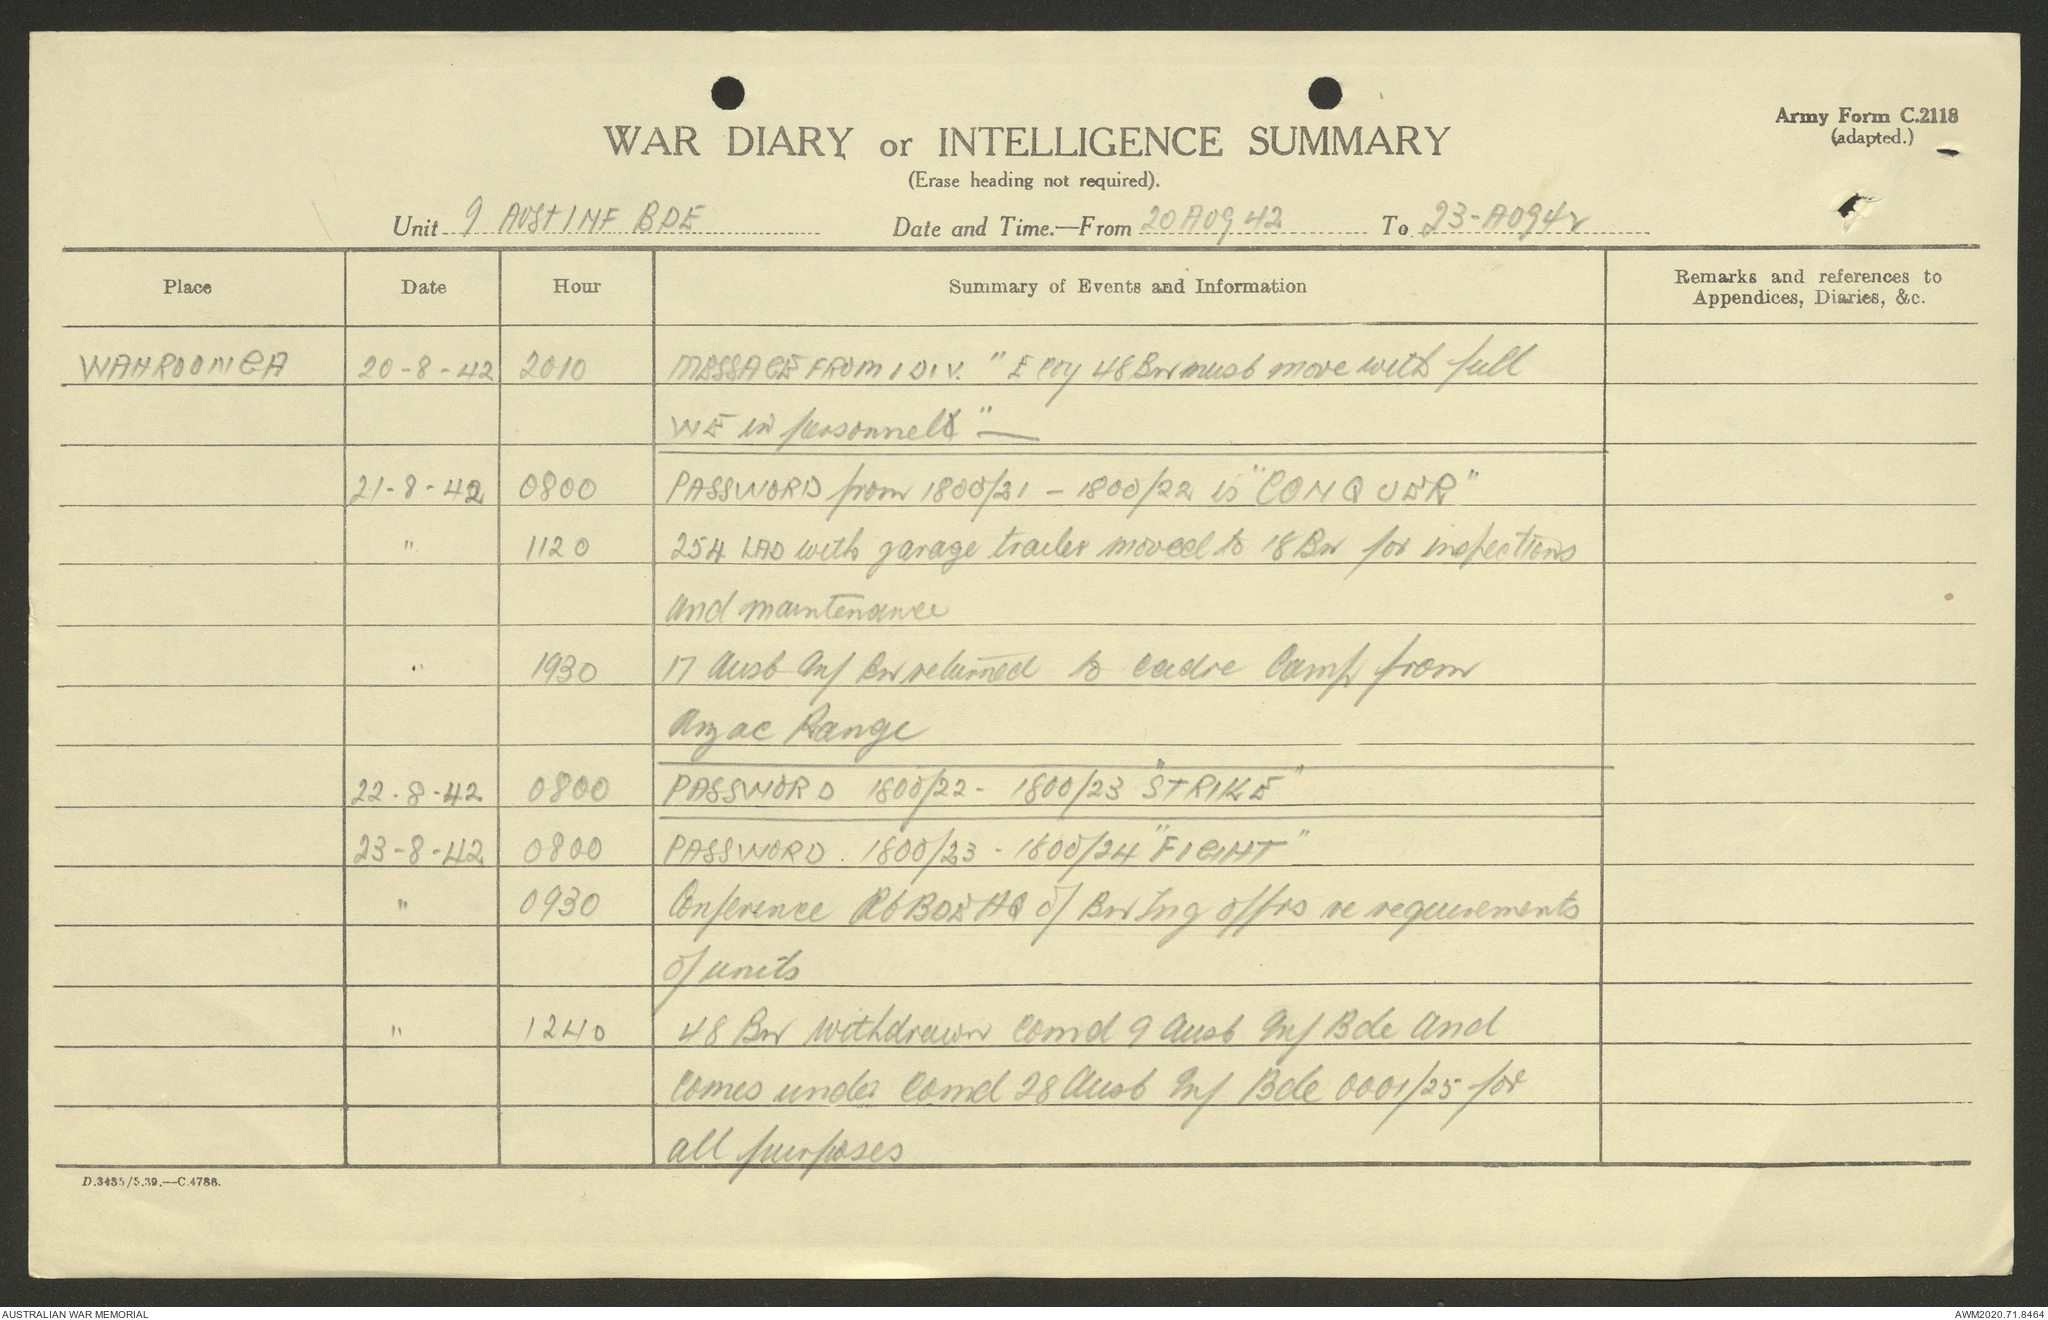 Army Form C.2118
(adapted.)
WAR DIARY or INTELLIGENCE SUMMARY
(Erase heading not required).
Unit 9 AUST INF BDE Date and Time.—From 20 AUG 42 To 23-AUG 42
Place Date Hour Summary of Events and Information Remarks and references to
Appendices, Diaries, &c.
WAHROONGA 20-8-42 2010 MESSAGE FROM 1 DIV. "E Coy 48 Bn must move with full
WE in personnel" —
21-8-42 0800 PASSWORD from 1800/21 - 1800/22 is "CONQUER"
" 1120 254 LAD with garage trailer moved to 18 Bn for inspections
and maintenance
" 1930 17 Aust Inf Bn returned to cadre Camp from
Anzac Range
22-8-42 0800 PASSWORD 1800/22 - 1800/23 "STRIKE"
23-8-42 0800 PASSWORD. 1800/23 - 1800/24 "FIGHT"
" 0930 Conference BDE HQ of Bn Trg offrs re requirements
of units
" 1240 48 Bn withdrawn Comd 9 Aust Inf Bde and
comes under Comd 28 Aust Inf Bde 0001/25 for
all purposes
D.3435/5.39.—C.4786.
AUSTRALIAN WAR MEMORIAL
AWM2020.71.8464